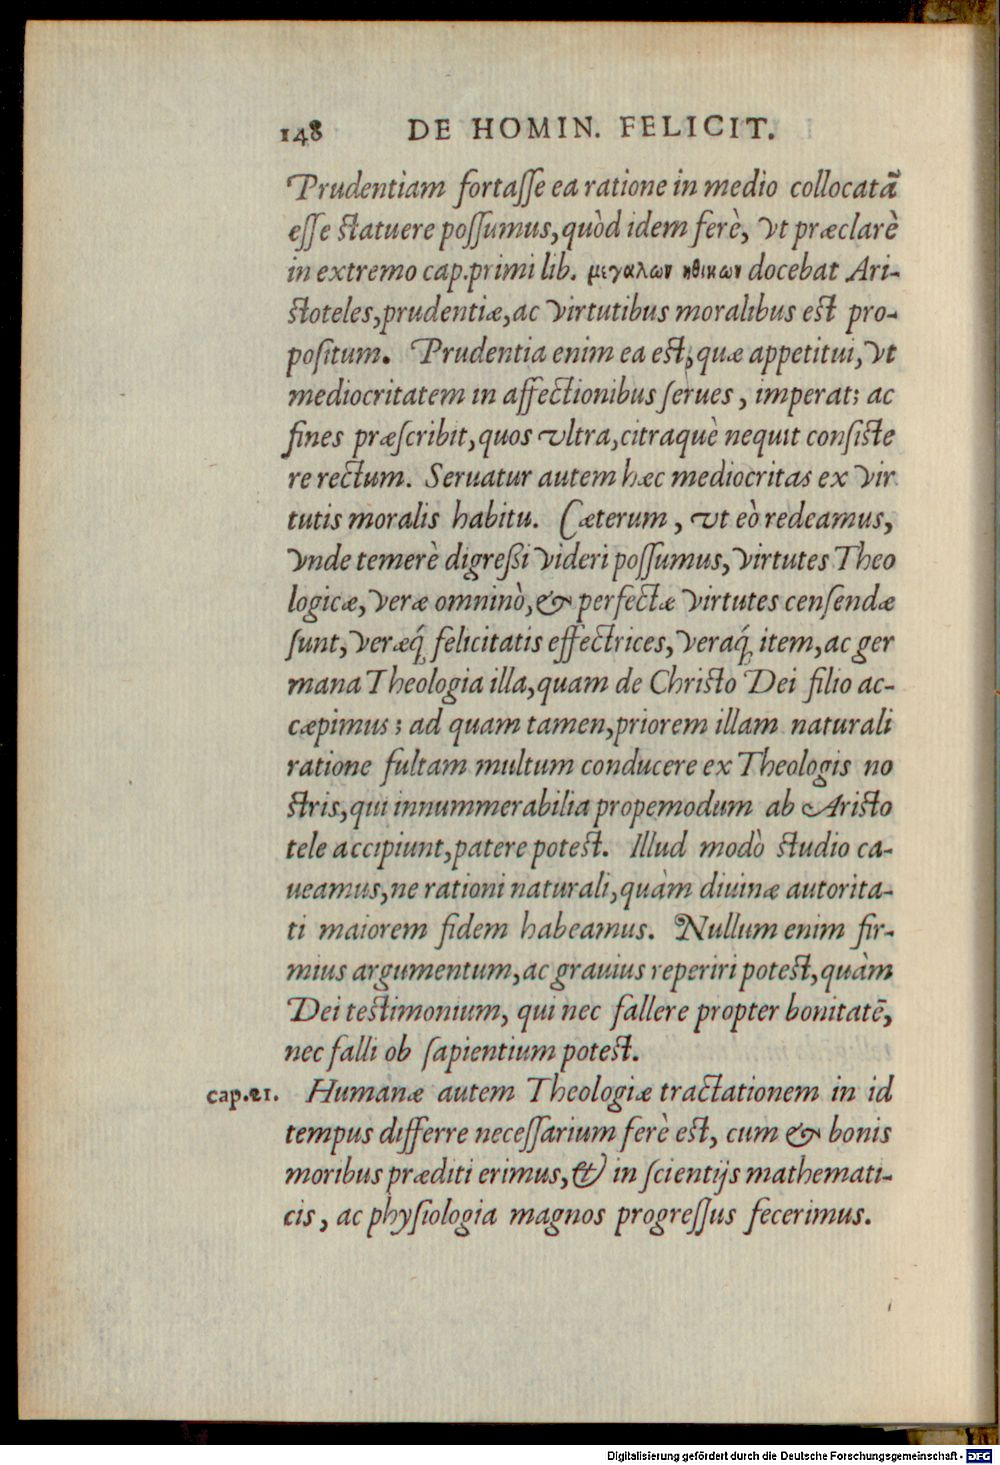 148 DE HOMIN. FELICIT.
Prudentiam fortaſſe ea ratione in medio collocatā
eſſe ſtatuere poſſumus, quòd idem ferè, vt præclarè
in extremo cap. primi lib. μεγαλων ηθικων docebat Ari-
ſtoteles, prudentiæ, ac virtutibus moralibus eſt pro-
poſitum. Prudentia enim ea eſt, quæ appetitui, vt
mediocritatem in affectionibus ſerues, imperat; ac
fines præſcribit, quos vltra, citraquè nequit conſiſte
re rectum. Seruatur autem hæc mediocritas ex vir
tutis moralis habitu. Cæterum, vt eò redeamus,
vnde temerè digreßi videri poſſumus, virtutes Theo
logicæ, veræ omninò, & perfectæ virtutes cenſendæ
ſunt, veræq́; felicitatis effectrices, veraq́; item, ac ger
mana Theologia illa, quam de Chriſto Dei filio ac-
cæpimus; ad quam tamen, priorem illam naturali
ratione fultam multum conducere ex Theologis no
ſtris, qui innummerabilia propemodum ab Ariſto
tele accipiunt, patere poteſt. Illud modò ſtudio ca-
ueamus, ne rationi naturali, quàm diuinæ autorita-
ti maiorem fidem habeamus. Nullum enim fir-
mius argumentum, ac grauius reperiri poteſt, quàm
Dei teſtimonium, qui nec fallere propter bonitatē,
nec falli ob ſapientium poteſt.
cap. 21. Humanæ autem Theologiæ tractationem in id
tempus differre neceſſarium ferè eſt, cum & bonis
moribus præditi erimus, & in ſcientijs mathemati-
cis, ac phyſiologia magnos progreſſus fecerimus.
Digitalisierung gefördert durch die Deutsche Forschungsgemeinschaft - DFG